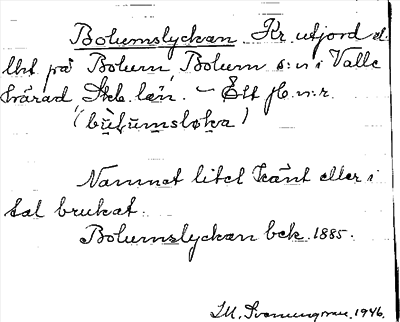 Bolumslyckan. Kr. utjord el.
lht på Bolum, Bolum s:n i Valle
härad, Skb. län. – Ett jb. n:r.
(bu̇lumsloka)
Namnet litet känt eller i
tal brukat.
Bolumslyckan bek. 1885.
1946.